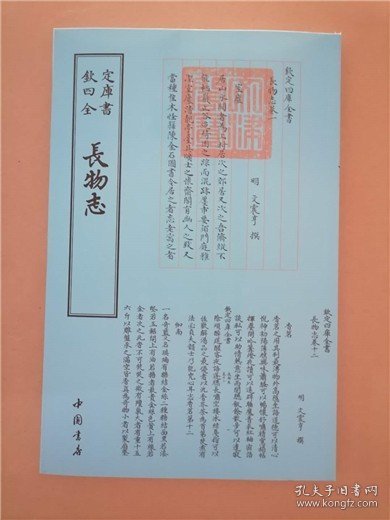 欽定
四庫
全書
長物志
中國書店
欽定四庫全書
長物志卷一
明 文震亨 撰
室廬
居山水間者為上村居次之郊居又次之吾儕縱不
能栖巖止谷追綺園之蹤而混跡廛市要須門庭雅
潔室廬清靚亭臺具曠士之懷齋閣有幽人之致又
當種佳木怪籜陳金石圖書令居之者忘老寓之者
欽定四庫全書
長物志卷十二
明 文震亨 撰
香茗
香茗之用其利最溥物外高隱坐語道德可以清心
悅神初陽薄暝興味蕭騷可以暢懷舒嘯晴窗搨帖
揮麈閒吟篝燈夜讀可以遠辟睡魔青衣紅袖密語
談私可以助情熱意坐雨閉窗飯餘散步可以遣寂
欽定四庫全書
除煩醉筵醒客夜語蓬窗長嘯空樓冰絃戛指可以
佐歡解渴品之最優者以沉香岕茶為首第焚煮有
法必貞夫韻士乃能究心耳志香茗第十二
伽南
一名奇藍又名琪瑀有糖結金絲二種糖結面黑若漆
堅若玉鋸開上有油若糖者最貴金絲色黃上有線若
金者次之此香不可焚焚之微有羶氣大者有重十五
六斤以雕盤承之滿室皆香真為奇物小者以製扇墜
孔夫子旧书网
book.kongfz.com